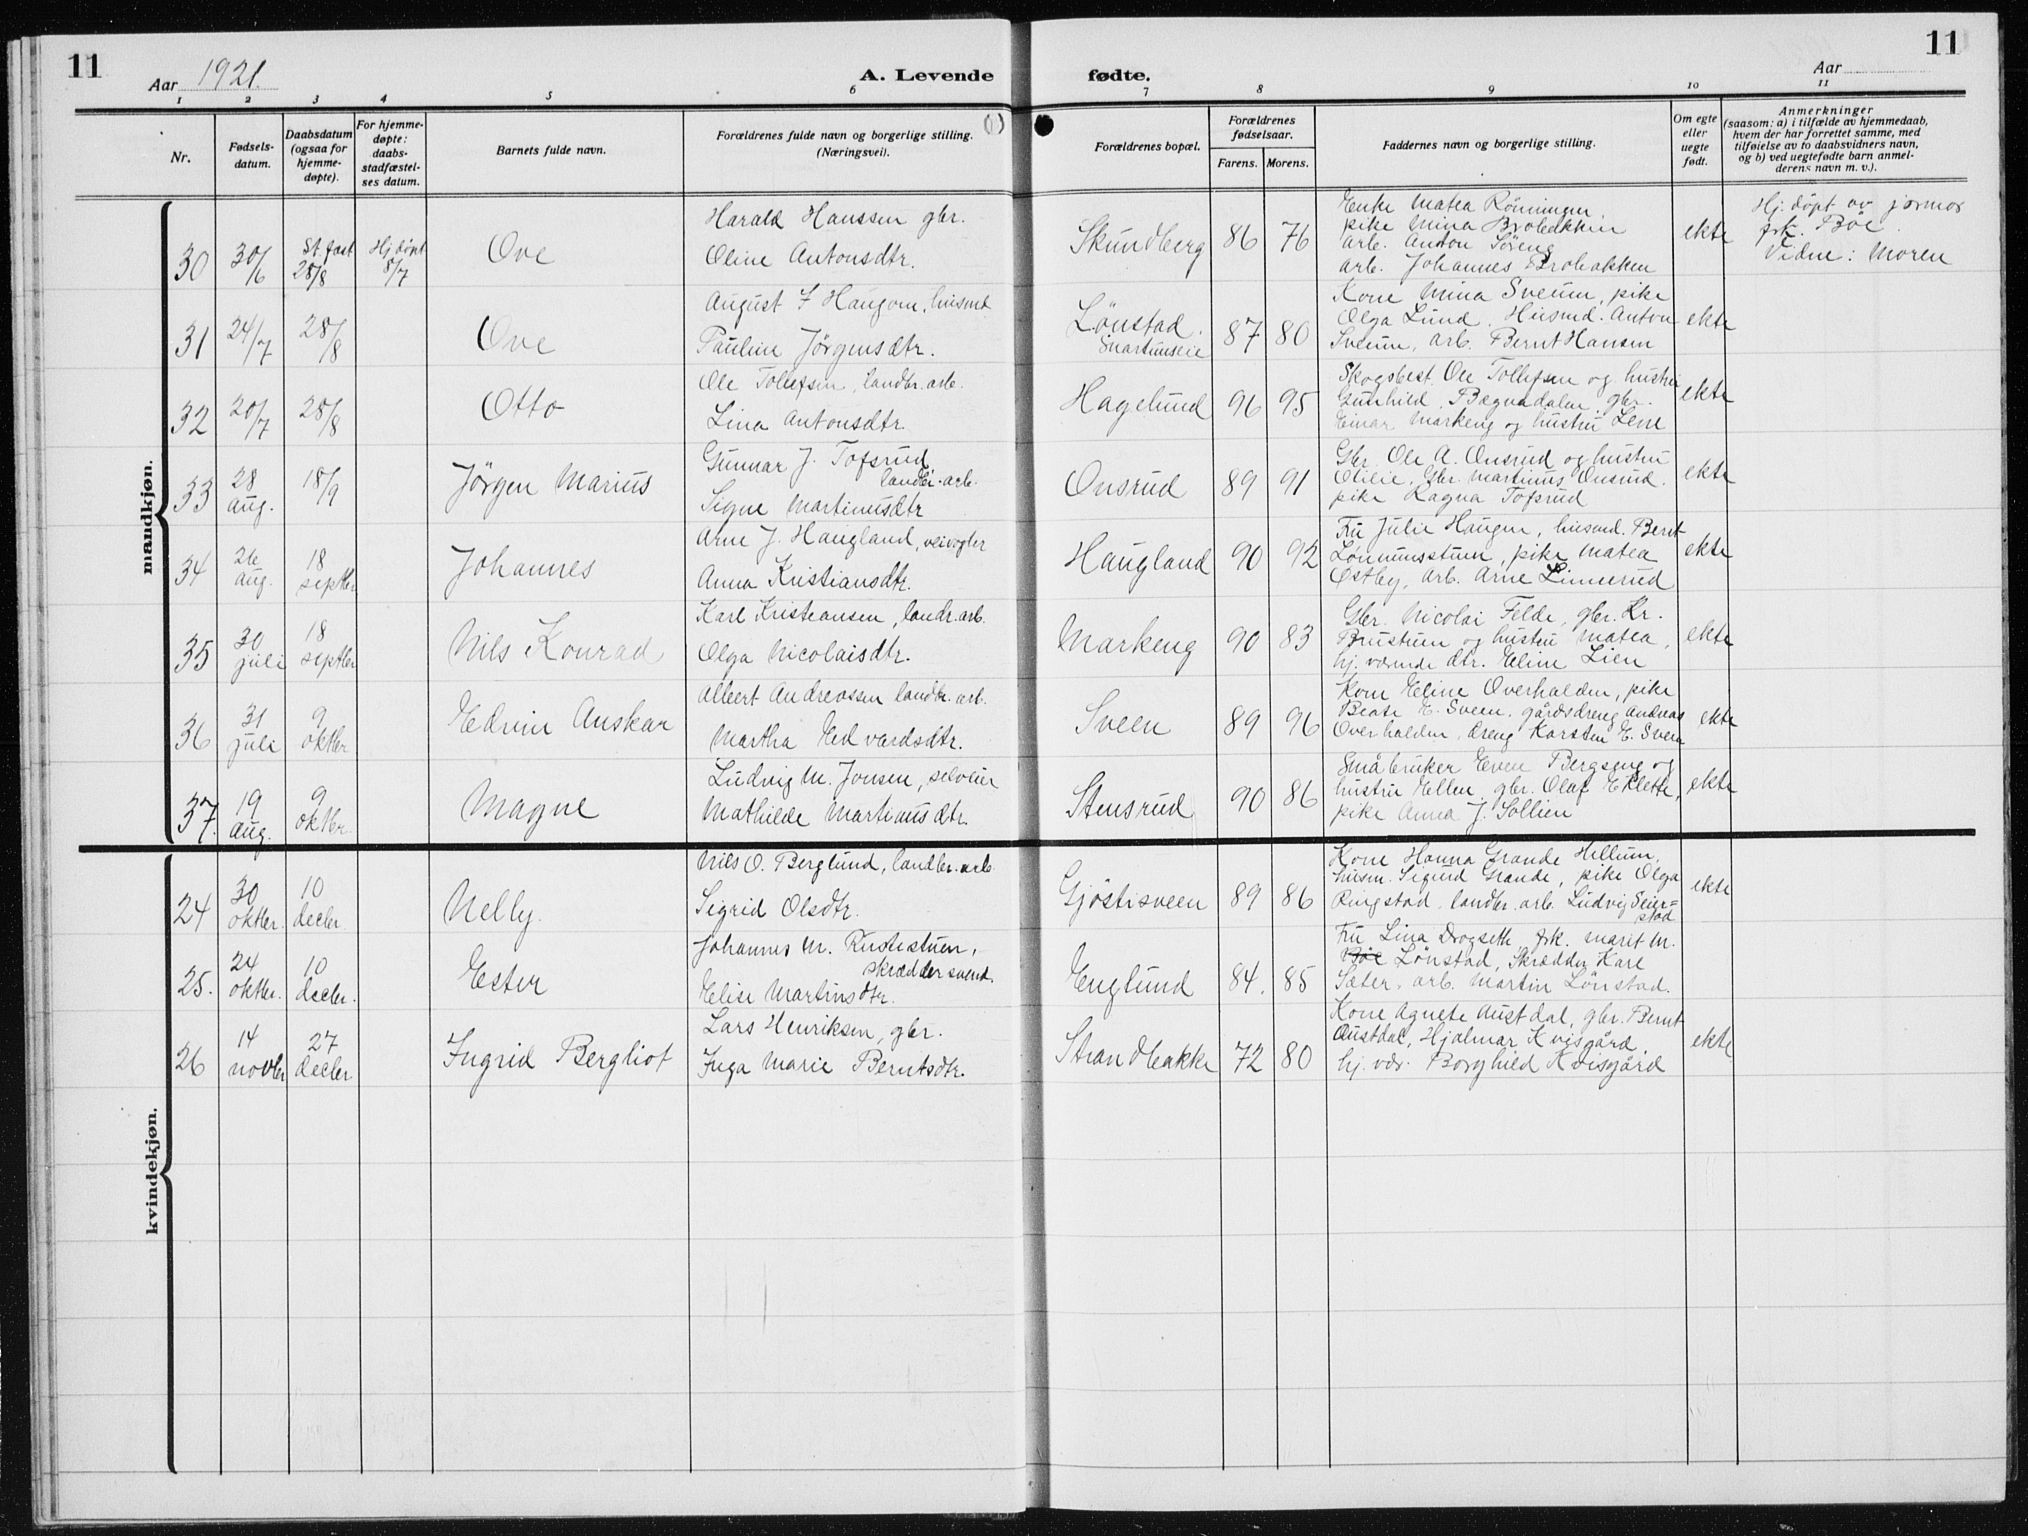 11
Aar 1921.
A. Levende
fødte.
Aar
11
1 2 3 4 5 6 7 8 9 10 11
Nr.
Fødsels-
datum.
Daabsdatum
(ogsaa for
hjemme-
døpte).
For hjemme-
døpte:
daabs-
stadfæstel-
ses datum.
Barnets fulde navn.
Forældrenes fulde navn og borgerlige stilling.
(Næringsvei).
Forældrenes bopæl.
Forældrenes
fødselsaar.
Farens. Morens.
Faddernes navn og borgerlige stilling.
Om egte
eller
uegte
født.
Anmerkninger
(saasom: a) i tilfælde av hjemmedaab,
hvem der har forrettet samme, med
tilføielse av to daabsvidners navn,
og b) ved uegtefødte barn anmel-
derens navn m. v.).
mandkjøn.
30 30/6 St. fast 28/8 Hj. døpt 8/7 Ove
Harald Hanssen gbr.
Oline Antonsdtr.
Skundberg 86 76
Enke Matea Rönningen,
pike Mina Brobakken
arb. Anton Söreng
arb. Johannes Brobakken
ekte
Hj. döpt av jormor
frk. Böe.
Vidne: Moren
31 24/7 28/8 Ove
August F Haugom, husmd
Pauline Jörgensdtr.
Lönstad. 87 80
Kone Mina Sveum, pike
Olga Lund, Husmd. Anton
Sveum, arb. Bernt Hansen
ekte
32 20/7 28/8 Otto
Ole Tollefsen, landbr. arb.
Lina Antonsdtr.
Hagelund 96 95
Skogsbest. Ole Tollefsen og hustru
Gunhild, Bægnadalen, gbr.
Einar Markeng og hustru Lene
ekte
33 28 aug. 18/9 Jörgen Marius
Gunnar J. Tofsrud,
landbr. arb.
Signe Martinusdtr
Onsrud 89 91
Gbr. Ole A. Onsrud og hustru
Otilie, Gbr. Martinus Onsrud,
pike Ragna Tofsrud
ekte
34 26 aug. 18 septbr Johannes
Arne J. Haugland, veivogter
Anna Kristiansdtr.
Haugland 90 92
Fru Julie Haugen, husmd. Bernt
Lönnumsstuen, pike Matea
Østby, arb. Arne Linnerud
ekte
35 30 juli 18 septbr Nils Konrad
Karl Kristiansen, landbr. arb.
Olga Nicolaisdtr.
Markeng 90 83
Gbr. Nicolai Felde, gbr. Kr.
Brustuen og hustru Matea,
hj. værende dtr. Eline Lien
ekte
36 31 juli 9 oktbr Edvin Anskar
Albert Andreassen landbr. arb.
Martha Edvardsdtr.
Sveen 89 96
Kone Eline Overhalden, pike
Beate E. Sveen, gårdsdreng Andreas
Overhalden, dreng Karsten E. Sveen
ekte
37. 19 aug. 9 oktbr. Magne
Ludvig M. Jonsen, selveier
Mathilde Martinusdtr.
Stensrud 90 86
Småbruker Even Bergseng og
hustru Ellen, gbr. Olaf E Klette,
pike Anna J. Sollien
ekte
kvindekjøn.
24 30 oktbr. 10 decbr Nelly.
Nils O. Berglund, landbr. arb.
Sigrid Olsdtr.
Gjöstisveen 89 86
Kone Hanna Grande Hellum,
husm. Sigurd Grande, pike Olga
Ringstad, landbr. arb. Ludvig Seier=
stad
ekte
25. 24 oktbr. 10 decbr. Ester
Johannes M. Rustestuen,
skræddersvend.
Elise Martinsdtr.
Englund 84. 85
Fru Lina Drogseth, frk. Marit M.
Böe Lönstad, Skrædder Karl
Sæter, arb. Martin Lönstad.
26 14 novbr 27 decbr Ingrid Bergliot
Lars Henriksen, gbr.
Inga Marie Berntsdtr.
Strandbakke 72 80
Kone Agnete Austdal, gbr. Bernt
Austdal, Hjalmar Kvisgård
hj. vær. Borghild Kvisgård
ekte